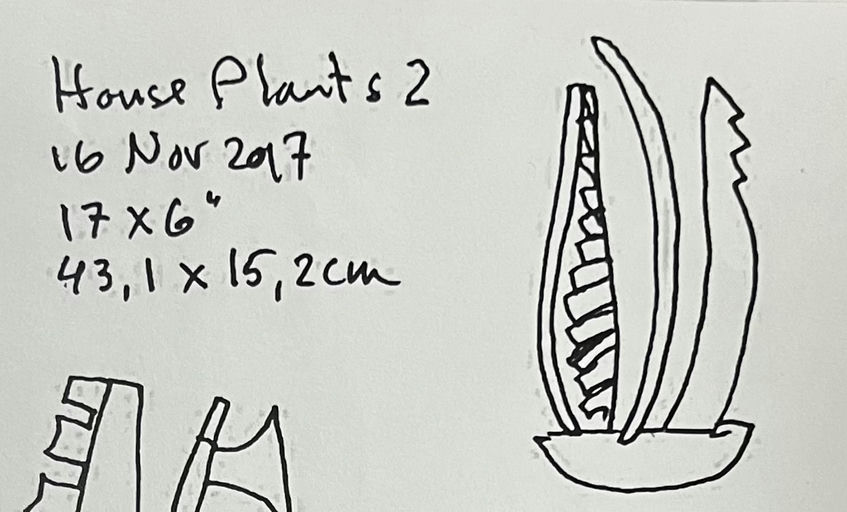 House Plants 2
16 Nov 2017
17 x 6"
43,1 x 15,2cm